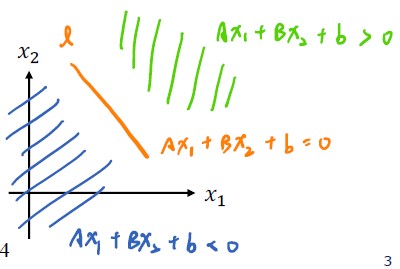 l
Ax₁ + Bx₂ + b > 0
x₂
Ax₁ + Bx₂ + b = 0
x₁
Ax₁ + Bx₂ + b < 0
4
3